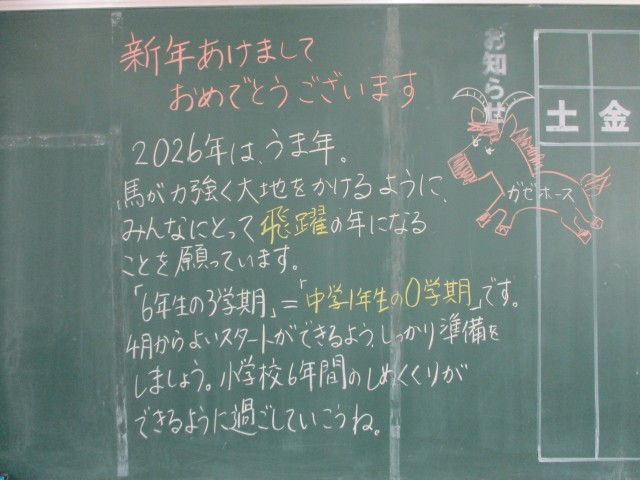 新年あけまして
おめでとうございます
2026年は、うま年。
馬が力強く大地をかけるように、
みんなにとって飛躍の年になる
ことを願っています。
「6年生の3学期」=「中学1年生の0学期」です。
4月からよいスタートができるようしっかり準備を
しましょう。小学校6年間のしめくくりが
できるように過ごしていこうね。
お知らせ
ガゼホース
土 金